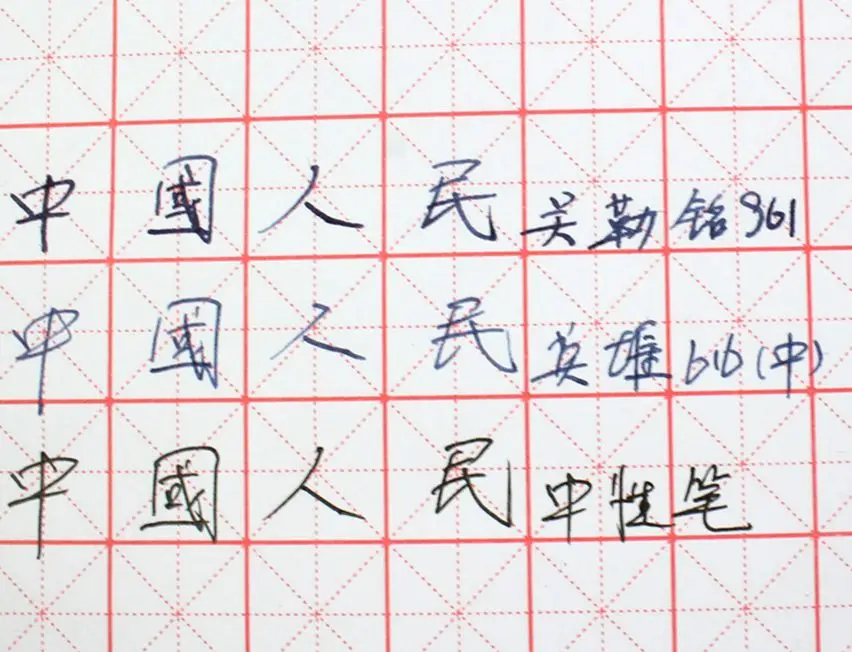 中國人民 关勒铭961
中國人民 英雄616(中)
中國人民 中性笔